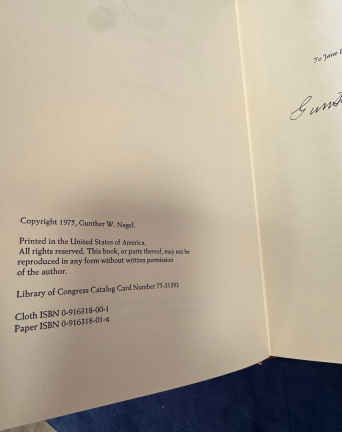 Copyright 1975, Gunther W. Nagel.
Printed in the United States of America.
All rights reserved. This book, or parts thereof, may not be
reproduced in any form without written permission
of the author.
Library of Congress Catalog Card Number 75-21393
Cloth ISBN 0-916318-00-1
Paper ISBN 0-916318-01-x
To Jane